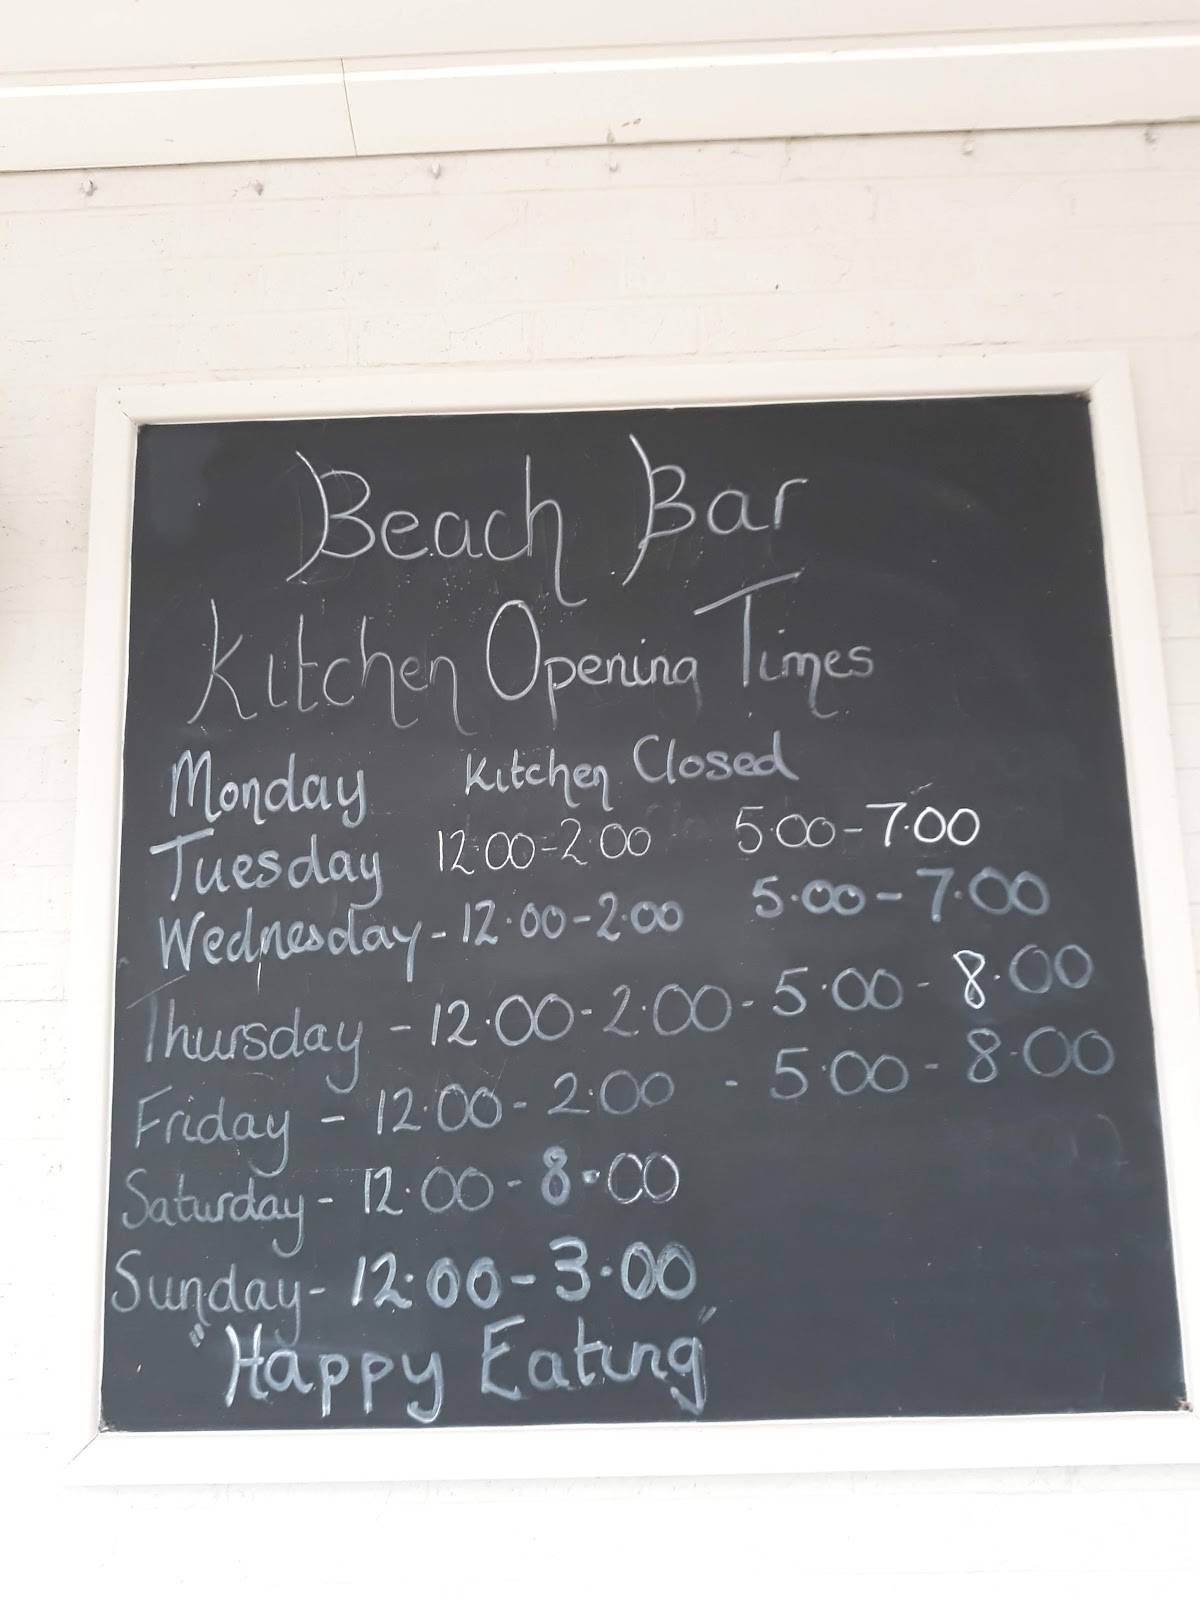 Beach Bar
Kitchen Opening Times
Monday Kitchen Closed
Tuesday 12:00-2:00 5.00-7.00
Wednesday - 12.00-2.00 5.00-7.00
Thursday - 12.00-2.00 - 5.00 - 8.00
Friday - 12.00-2.00 - 5.00 - 8.00
Saturday - 12.00 - 8.00
Sunday - 12.00 - 3.00
"Happy Eating"